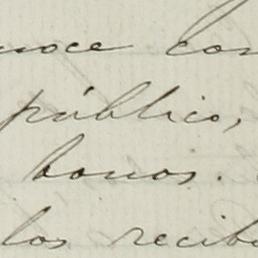 noce con
público,
bonos.
los recibo